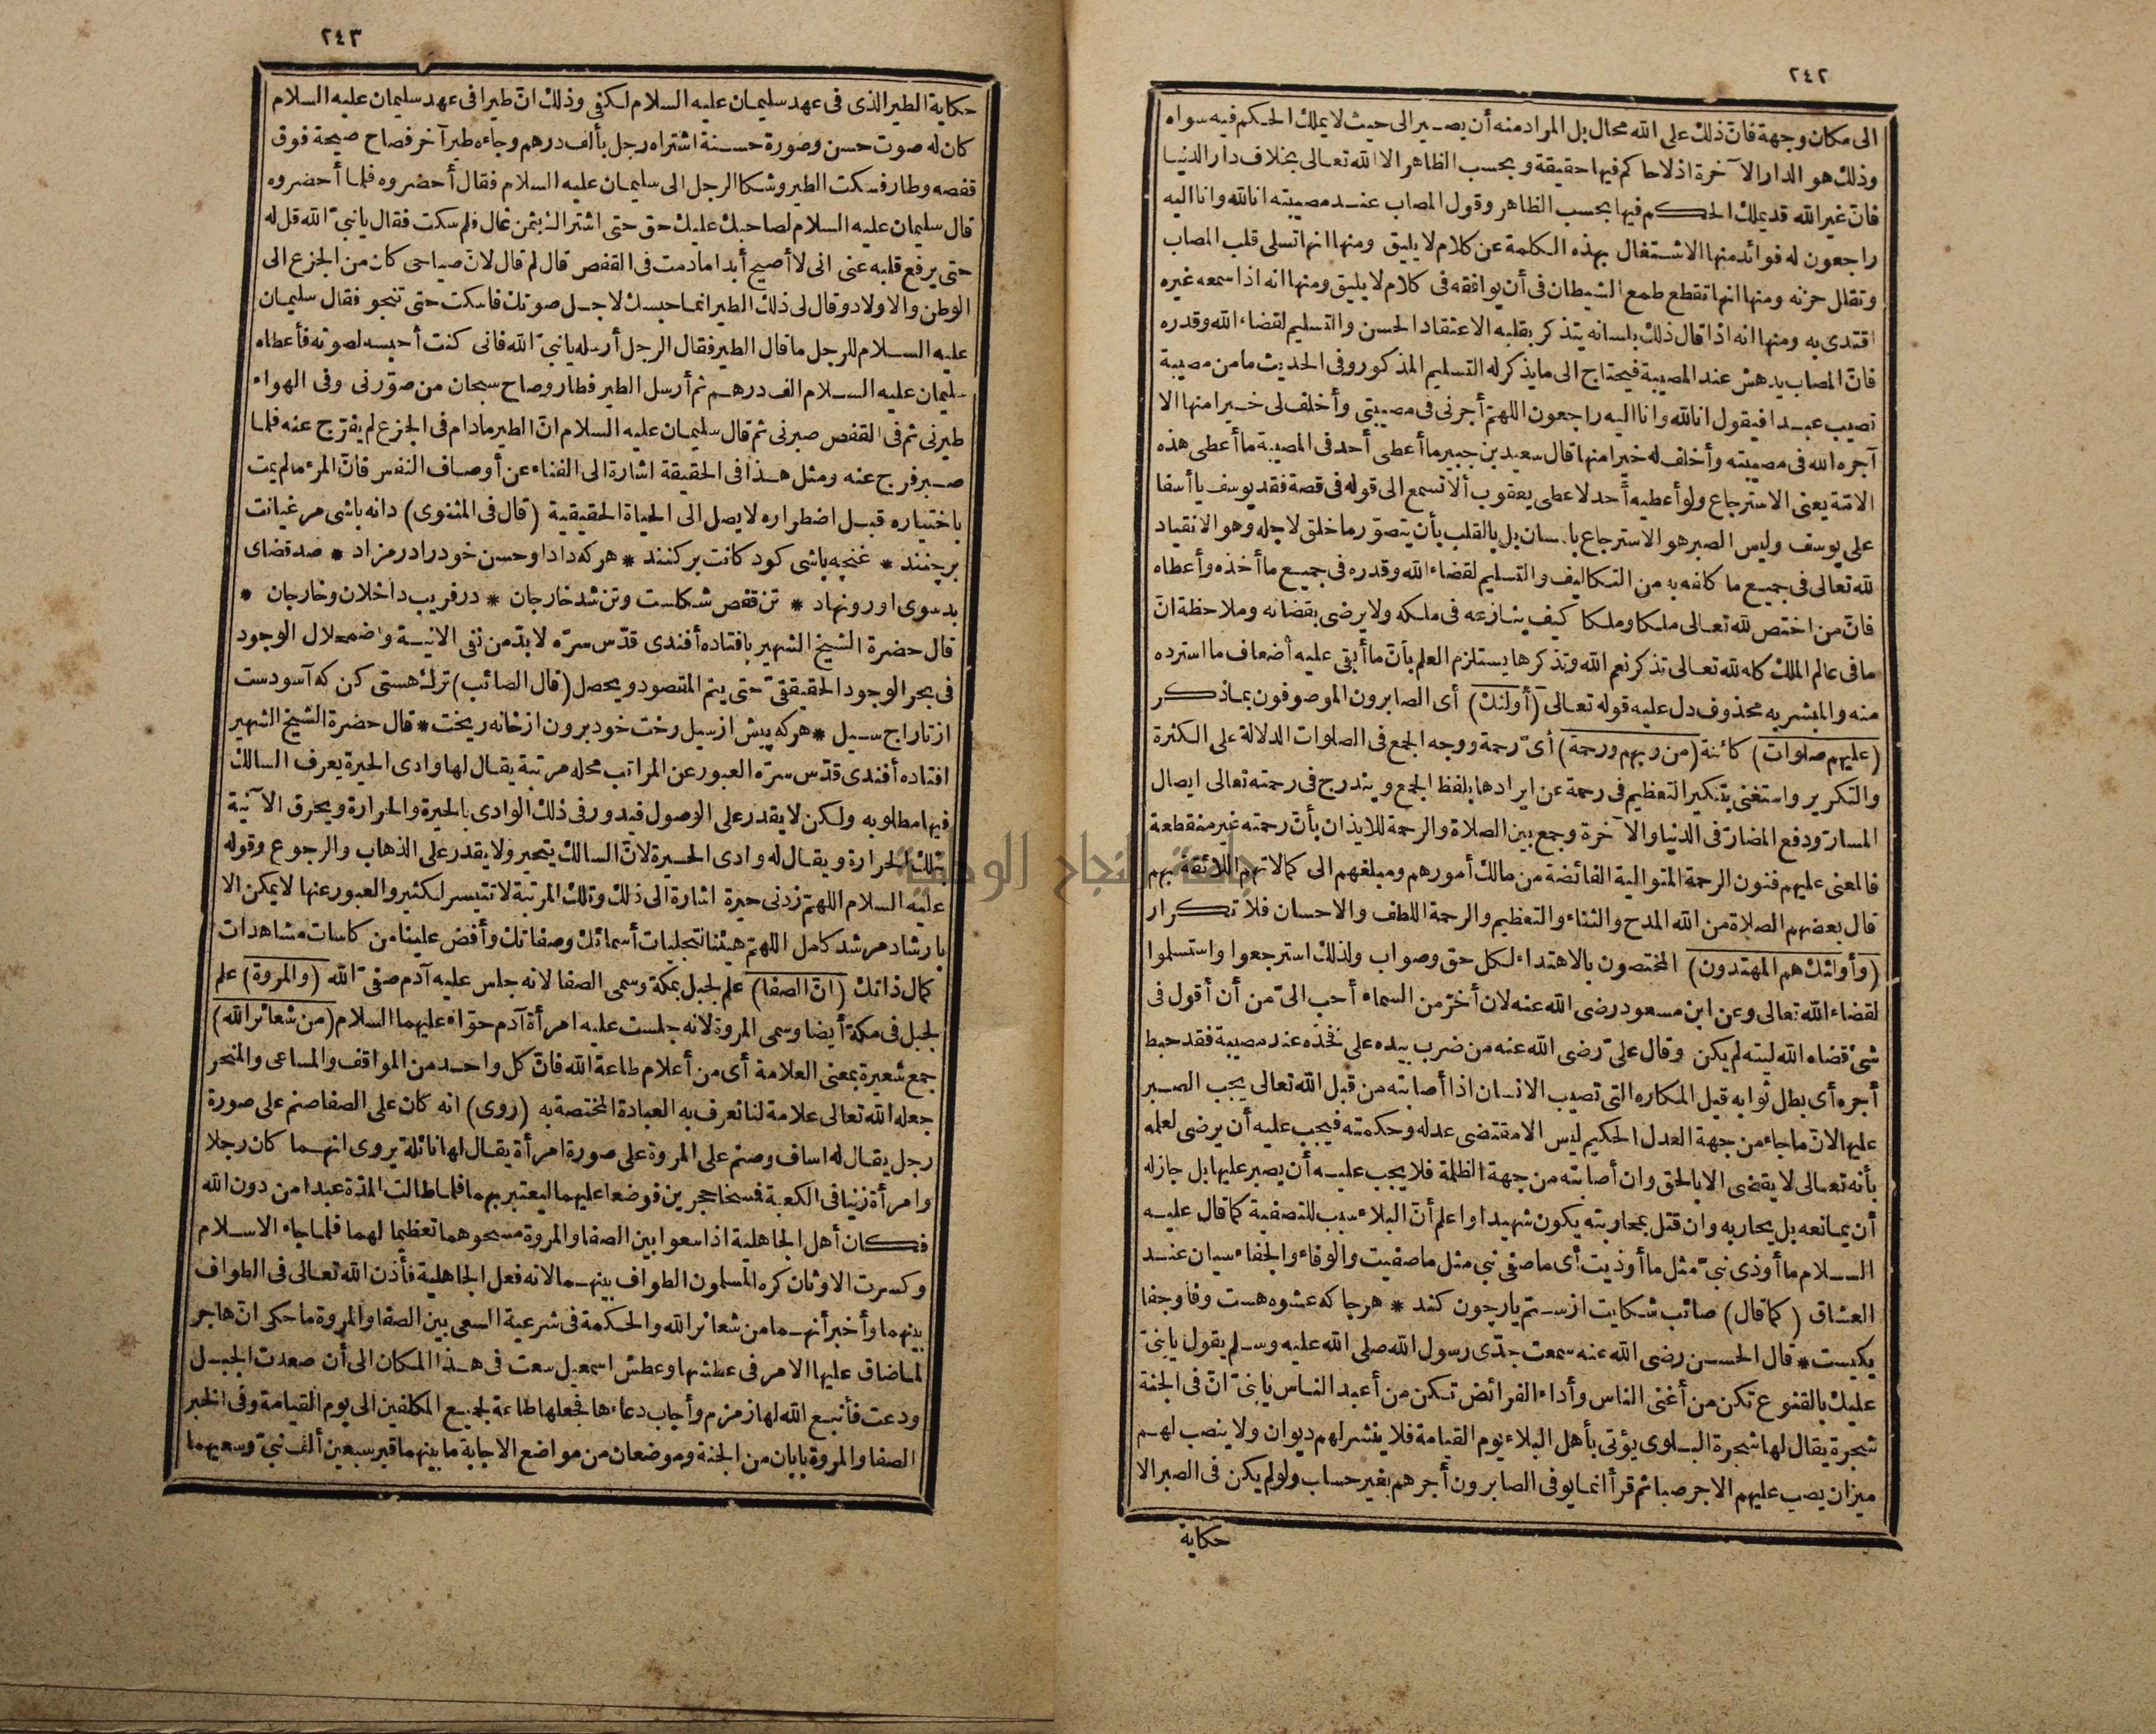 ٢٤٢
الى مكان وجهة فانّ ذلك على الله محال بل المراد منه أن يصير الى حيث لا يملك الحكم فيه سواه
وذلك هو الدار الآخرة اذ لا حاكم فيها حقيقة وبحسب الظاهر الا الله تعالى بخلاف دار الدنيا
فانّ غير الله قد يملك الحكم فيها بحسب الظاهر وقول المصاب عند مصيبته انا لله وانا اليه
راجعون له فوائد منها الاشتغال بهذه الكلمة عن كلام لا يليق ومنها انها تسلى قلب المصاب
وتقلل حزنه ومنها انها تقطع طمع الشيطان فى أن يوافقه فى كلام لا يليق ومنها انه اذا سمعه غيره
اقتدى به ومنها انه اذا قال ذلك بلسانه يتذكر بقلبه الاعتقاد الحسن والتسليم لقضاء الله وقدره
فانّ المصاب يدهش عند المصيبة فيحتاج الى ما يذكر له التسليم المذكور وفى الحديث ما من مصيبة
تصيب عبدا فيقول انا لله وانا اليه راجعون اللهمّ أجرنى فى مصيبتى وأخلف لى خيرا منها الا
آجره الله فى مصيبته وأخلف له خيرا منها قال سعيد بن جبير ما أعطى أحد فى المصيبة ما أعطى هذه
الامّة يعنى الاسترجاع ولو أعطيه أحد لاعطى يعقوب ألا تسمع الى قوله فى قصة فقد يوسف يا أسفا
على يوسف وليس الصبر هو الاسترجاع باللسان بل بالقلب بأن يتصوّر ما خلق لاجله وهو الانقياد
لله تعالى فى جميع ما كلفه به من التكاليف والتسليم لقضاء الله وقدره فى جميع ما أخذه وأعطاه
فانّ من اختص لله تعالى ملكا وملكا كيف ينازعه فى ملكه ولا يرضى بقضائه وملاحظة انّ
ما فى عالم الملك كله لله تعالى تذكر نعم الله وتذكرها يستلزم العلم بأنّ ما أبقى عليه أضعاف ما استرده
منه والمبشر به محذوف دل عليه قوله تعالى (أولئك) أى الصابرون الموصوفون بما ذكر
(عليهم صلوات) كائنة (من ربهم ورحمة) أىّ رحمة ووجه الجمع فى الصلوات الدلالة على الكثرة
والتكرير واستغنى بتنكير التعظيم فى رحمة عن ايرادها بلفظ الجمع ويندرج فى رحمته تعالى ايصال
المسارّ ودفع المضارّ فى الدنيا والآخرة وجمع بين الصلاة والرحمة للايذان بأنّ رحمته غير منقطعة
فالمعنى عليهم فنون الرحمة المتوالية الفائضة من مالك أمورهم ومبلغهم الى كمالاتهم اللائقة بهم
قال بعضهم الصلاة من الله المدح والثناء والتعظيم والرحمة اللطف والاحسان فلا تكرار
(وأولئك هم المهتدون) المختصون بالاهتداء لكل حق وصواب ولذلك استرجعوا واستسلموا
لقضاء الله تعالى وعن ابن مسعود رضى الله عنه لان أخرّ من السماء أحب الىّ من أن أقول فى
شئ قضاه الله ليته لم يكن وقال علىّ رضى الله عنه من ضرب بيده على فخذه عند مصيبة فقد حبط
أجره أى بطل ثوابه قيل المكاره التى تصيب الانسان اذا أصابته من قبل الله تعالى يجب الصبر
عليها لانّ ما جاء من جهة العدل الحكيم ليس الا مقتضى عدله وحكمته فيجب عليه أن يرضى لعلمه
بأنه تعالى لا يقضى الا بالحق وان أصابته من جهة الظلمة فلا يجب عليه أن يصبر عليها بل جاز له
أن يمانعه بل يحاربه وان قتل بمحاربته يكون شهيدا واعلم أنّ البلاء سبب للتصفية كما قال عليه
السلام ما أوذى نبىّ مثل ما أوذيت أى ما صفى نبى مثل ما صفيت والوفاء والجفاء سيان عند
العشاق (كما قال) صائب شكايت از ستم يار چون كند * هرجا كه عشوه هست وفا وجفا
يكيست * قال الحسن رضى الله عنه سمعت جدّى رسول الله صلى الله عليه وسلم يقول يا بنىّ
عليك بالقنوع تكن من أغنى الناس وأداء الفرائض تكن من أعبد الناس يا بنىّ انّ فى الجنة
شجرة يقال لها شجرة البلوى يؤتى بأهل البلاء يوم القيامة فلا ينشر لهم ديوان ولا ينصب لهم
ميزان يصب عليهم الاجر صبا ثم قرأ انما يوفى الصابرون أجرهم بغير حساب ولو لم يكن فى الصبر الا
حكاية
٢٤٣
حكاية الطير الذى فى عهد سليمان عليه السلام لكفى وذلك انّ طيرا فى عهد سليمان عليه السلام
كان له صوت حسن وصورة حسنة اشتراه رجل بألف درهم وجاءه طير آخر فصاح صيحة فوق
قفصه وطار فسكت الطير وشكا الرجل الى سليمان عليه السلام فقال أحضروه فلما أحضروه
قال سليمان عليه السلام لصاحبك عليك حق حتى اشتراك بثمن غال فلم سكت فقال يا نبىّ الله قل له
حتى يرفع قلبه عنى انى لا أصيح أبدا ما دمت فى القفص قال لم قال لانّ صياحى كان من الجزع الى
الوطن والاولاد وقال لى ذلك الطير انما حبسك لاجل صوتك فاسكت حتى تنجو فقال سليمان
عليه السلام للرجل ما قال الطير فقال الرجل أرسله يا نبىّ الله فانى كنت أحبسه لصوته فأعطاه
سليمان عليه السلام الف درهم ثم أرسل الطير فطار وصاح سبحان من صوّرنى وفى الهواء
طيرنى ثم فى القفص صبرنى ثم قال سليمان عليه السلام انّ الطير مادام فى الجزع لم يفرّج عنه فلما
صبر فرج عنه ومثل هذا فى الحقيقة اشارة الى الفناء عن أوصاف النفس فانّ المرء ما لم يمت
باختياره قبل اضطراره لا يصل الى الحياة الحقيقية (قال فى المثنوى) دانه باشى مرغيانت
برچنند * غنچه باشى كودكانت بركنند * هركه داد او حسن خود را در مزاد * صد قضاى
بد سوى او رو نهاد * تن قفص شكلست وتن شد خارجان * در فريب داخلان وخارجان *
قال حضرة الشيخ الشهير بافتاده أفندى قدّس سرّه لا بدّ من نفى الانية واضمحلال الوجود
فى بحر الوجود الحقيقىّ حتى يتم المقصود ويحصل (قال الصائب) ترك هستى كن كه آسودست
از تاراج سيل * هركه پيش از سيل رخت خود برون از خانه ريخت * قال حضرة الشيخ الشهير
افتاده أفندى قدّس سرّه العبور عن المراتب محله مرتبة يقال لها وادى الحيرة يعرف السالك
فيها مطلوبه ولكن لا يقدر على الوصول فيدور فى ذلك الوادى بالحيرة والحرارة ويحرق الآنية
بتلك الحرارة ويقال له وادى الحيرة لانّ السالك يتحير ولا يقدر على الذهاب والرجوع وقوله
عليه السلام اللهمّ زدنى حيرة اشارة الى ذلك وتلك المرتبة لا تتيسر لكثير والعبور عنها لا يمكن الا
بارشاد مرشد كامل اللهمّ هيئنا لتجليات أسمائك وصفاتك وأفض علينا من كاسات مشاهدات
كمال ذاتك (انّ الصفا) علم لجبل بمكة وسمى الصفا لانه جلس عليه آدم صفىّ الله (والمروة) علم
لجبل فى مكة أيضا وسمى المروة لانه جلست عليه امرأة آدم حوّاء عليهما السلام (من شعائر الله)
جمع شعيرة بمعنى العلامة أى من أعلام طاعة الله فانّ كل واحد من المواقف والمساعى والمنحر
جعله الله تعالى علامة لنا نعرف به العبادة المختصة به (روى) انه كان على الصفا صنم على صورة
رجل يقال له اساف وصنم على المروة على صورة امرأة يقال لها نائلة يروى انهما كان رجلا
وامرأة زنيا فى الكعبة فمسخا حجرين فوضعا عليهما ليعتبر بهما فلما طالت المدّة عبدا من دون الله
فكان أهل الجاهلية اذا سعوا بين الصفا والمروة مسحوهما تعظيما لهما فلما جاء الاسلام
وكسرت الاوثان كره المسلمون الطواف بينهما لانه فعل الجاهلية فأذن الله تعالى فى الطواف
بينهما وأخبر أنهما من شعائر الله والحكمة فى شرعية السعى بين الصفا والمروة ما حكى انّ هاجر
لما ضاق عليها الامر فى عطشها وعطش اسمعيل سعت فى هذا المكان الى أن صعدت الجبل
ودعت فأنبع الله لها زمزم وأجاب دعاءها فجعلها طاعة لجميع المكلفين الى يوم القيامة وفى الخبر
الصفا والمروة بابان من الجنة وموضعان من مواضع الاجابة ما بينهما قبر سبعين ألف نبىّ وسعيهما
جامعة النجاح الوطنية